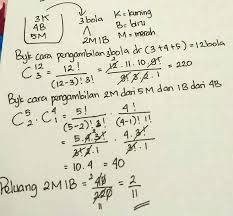 3K
4B
5M
3 bola
2M 1B
K = kuning
B = biru
M = merah
Byk cara pengambilan 3 bola dr (3+4+5) = 12 bola
C 12 3 = 12! / (12-3)! 3! = 12.11.10.9! / 9!.3.2.1 = 220
Byk cara pengambilan 2M dari 5M dan 1B dari 4B
C 5 2 . C 4 1 = 5! / (5-2)! 2! . 4! / (4-1)! 1!
= 5.4.3! / 3!.2.1 . 4.3! / 3!.1
= 10.4 = 40
Peluang 2M 1B = 40 / 220 = 2 / 11